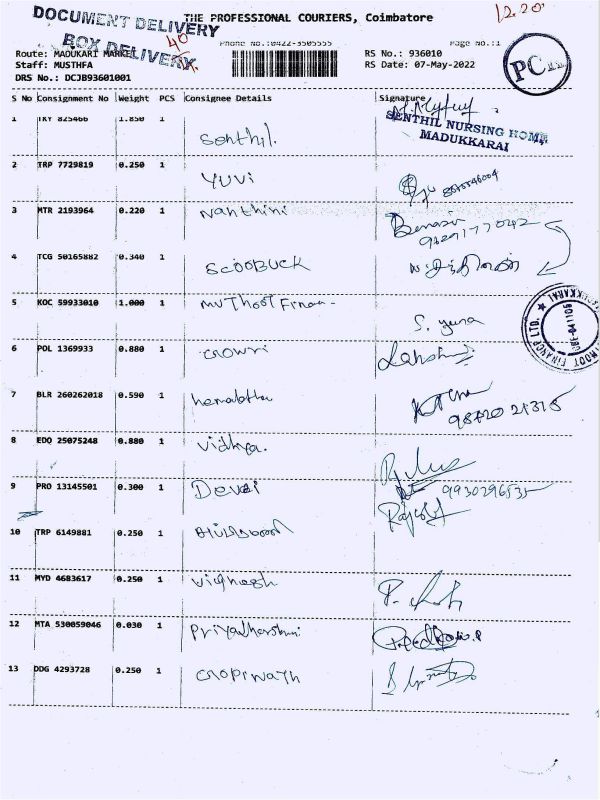 DOCUMENT DELIVERY
BOX DELIVERY
THE PROFESSIONAL COURIERS, Coimbatore
12.20
40
Phone No.:0422-3505555 Page No.:1
Route: MADUKARI MARKET RS No.: 936010
Staff: MUSTHFA RS Date: 07-May-2022
DRS No.: DCJB93601001
PC
S No Consignment No Weight PCS Consignee Details Signature
1 TKY 825466 1.850 1 Senthil.
SENTHIL NURSING HOME
MADUKKARAI
2 TRP 7729819 0.250 1 YUVI
3 MTR 2193964 0.220 1 Nanthini
4 TCG 50165882 0.340 1 SCOOBUCK
5 KOC 59933010 1.000 1 MUTHOOT Finan- S. yuna
6 POL 1369933 0.880 1 Gowri Lakshmi
7 BLR 260262018 0.590 1 hemalatha
8 EDQ 25075248 0.880 1 Vidhya.
9 PRO 13145501 0.300 1 Devai 9930296535
10 TRP 6149881 0.250 1
11 MYD 4683617 0.250 1 Vignesh
12 MTA 530059046 0.030 1 Priyadharshini
13 DDG 4293728 0.250 1 Gopinath